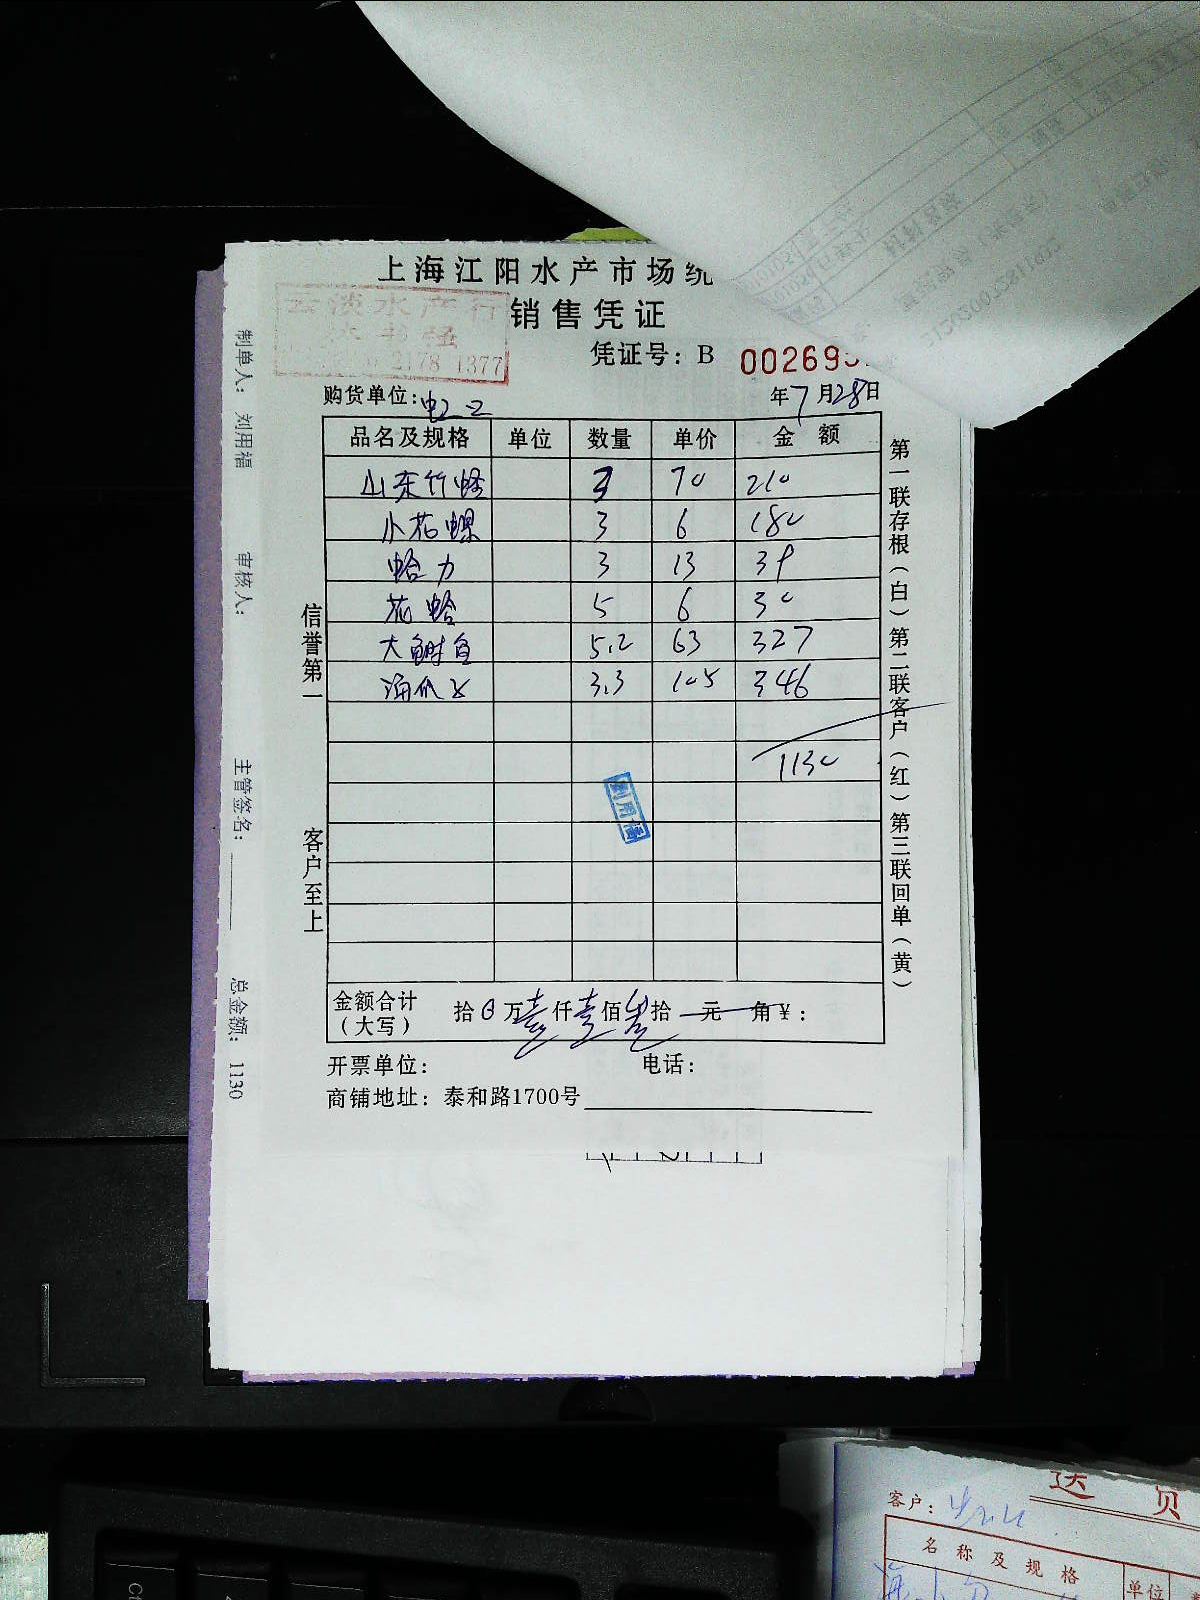 上海江阳水产市场统
销售凭证
云淡水产行
2178 1377
凭证号：B 002695
购货单位：
年7月28日
品名及规格 单位 数量 单价 金额
山东竹蛏 3 70 210
小花螺 3 6 180
蛤力 3 13 39
花蛤 5 6 30
大鲥鱼 5.2 63 327
3.3 105 346
1130
刘用福
金额合计（大写） 拾0万壹仟壹佰叁拾 元 角¥：
开票单位： 电话：
商铺地址：泰和路1700号
信誉第一 客户至上
第一联存根（白）第二联客户（红）第三联回单（黄）
制单人：刘用福 审核人： 主管签名： 总金额：1130
送货
客户：
名称及规格 单位